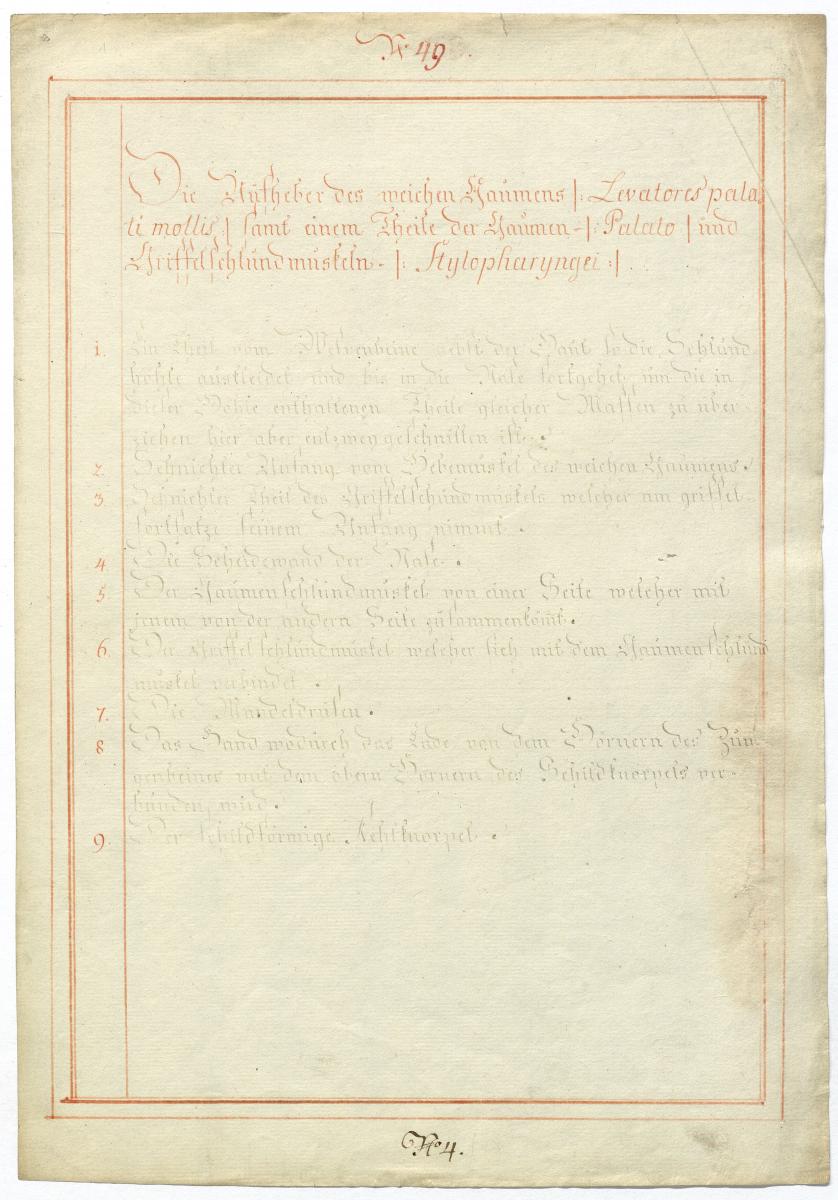 N 49.
Die Aufheber des weichen Gaumens |: Levatores pala,
ti mollis :| samt einem Theile der Gaumen- |: Palato | und
Griffelschlundmuskeln- |: Stylopharyngei :|
1. Ein Theil vom Keilbeine nebst der Haut so die Schlund
höhle auskleidet und bis in die Nase fortgehet, um die in
dieser Höhle enthaltenen Theile gleicher Massen zu über
ziehen hier aber entzwey geschnitten ist.
2. Sehnichter Anfang vom Hebemuskel des weichen Gaumens.
3. Sehnichter Theil des Griffelschlundmuskels welcher am griffel-
fortsatze seinem Anfang nimmt.
4. Die Scheidewand der Nase.
5. Der Gaumenschlundmuskel von einer Seite welcher mit
jenem von der andern Seite zusammenkom̄t.
6. Der Griffelschlundmuskel welcher sich mit dem Gaumenschlund
muskel verbindet.
7. Die Mandeldrüsen.
8 Das Band wodurch das Ende von dem Hörnern des Zun-
genbeines mit dem obern Hörnern des Schildknorpels ver-
bunden wird.
9. Der schildförmige Kehlknorpel.
No 4.